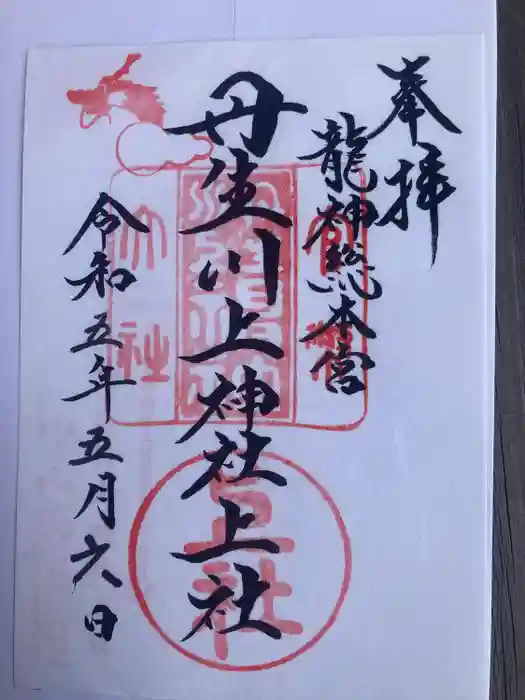 奉拝
龍神総本宮
丹生川上神社上社
令和五年五月六日
上社